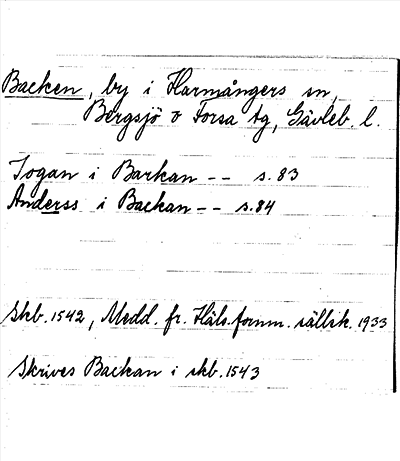 Backen, by i Harmångers sn,
Bergsjö o Forsa tg, Gävleb. l.
Jogan i Barkan -- s. 83
Anderss i Backan -- s. 84
Skb. 1542, Medd. fr. Häls. fornm. sällsk. 1933
Skrives Backan i skb. 1543